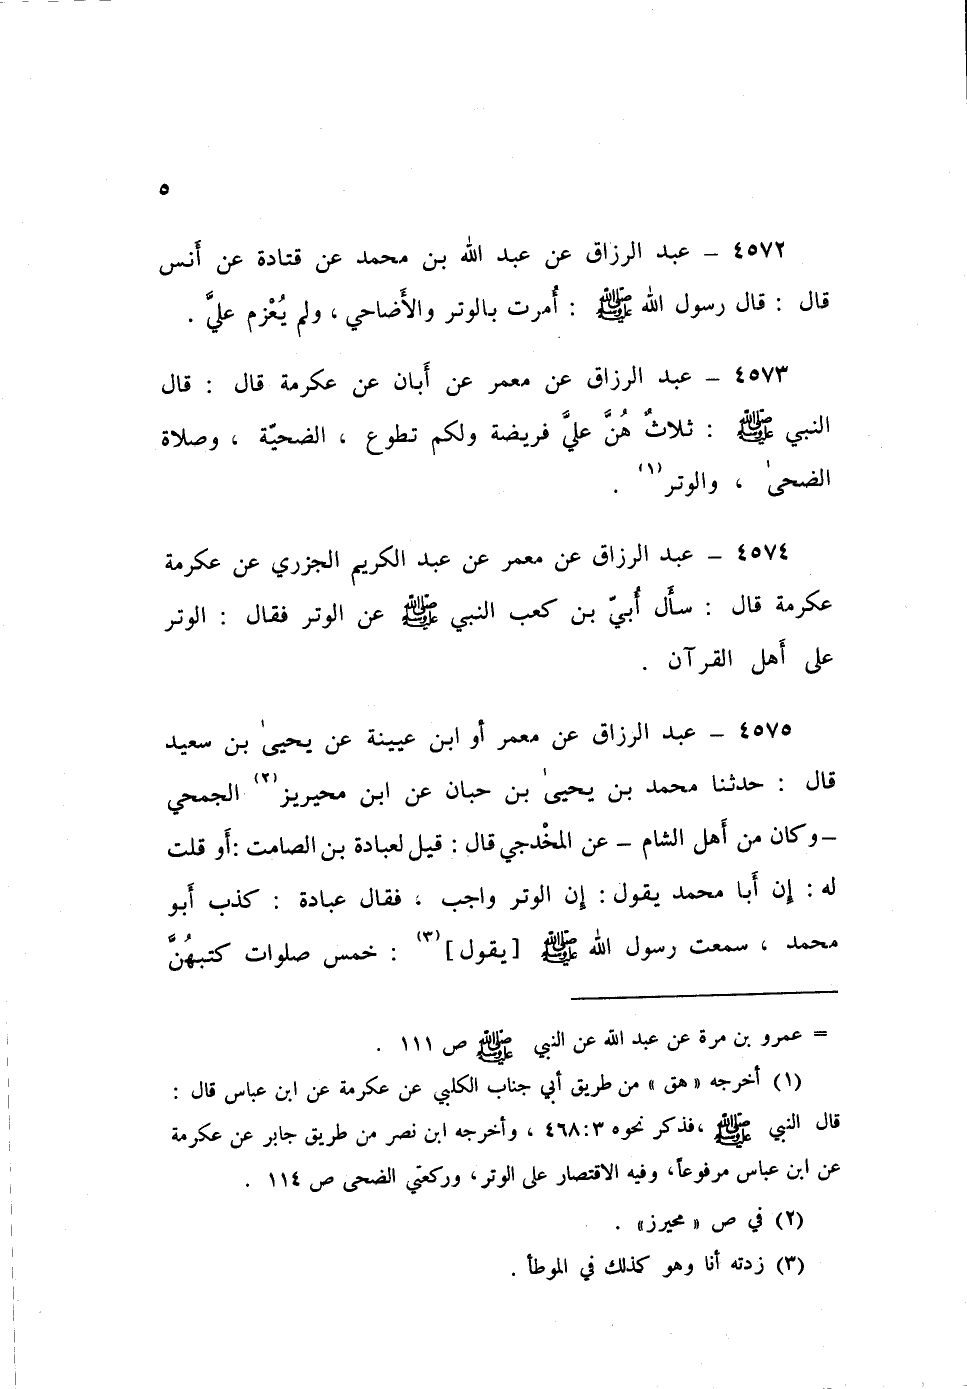 ٥
٤٥٧٢ – عبد الرزاق عن عبد الله بن محمد عن قتادة عن أَنس
قال : قال رسول الله ﷺ : أُمرت بالوتر والأَضاحي ، ولم يُعْزم عليَّ .
٤٥٧٣ – عبد الرزاق عن معمر عن أَبان عن عكرمة قال : قال
النبي ﷺ : ثلاثٌ هُنَّ عليَّ فريضة ولكم تطوع ، الضحيّة ، وصلاة
الضحىٰ ، والوتر(١) .
٤٥٧٤ – عبد الرزاق عن معمر عن عبد الكريم الجزري عن عكرمة
عكرمة قال : سأَل أُبيّ بن كعب النبي ﷺ عن الوتر فقال : الوتر
على أَهل القرآن .
٤٥٧٥ – عبد الرزاق عن معمر أو ابن عيينة عن يحيىٰ بن سعيد
قال : حدثنا محمد بن يحيىٰ بن حبان عن ابن محيريز(٢) الجمحي
– وكان من أَهل الشام – عن المخْدجي قال : قيل لعبادة بن الصامت : أَو قلت
له : إِن أَبا محمد يقول : إِن الوتر واجب ، فقال عبادة : كذب أَبو
محمد ، سمعت رسول الله ﷺ [يقول](٣) : خمس صلوات كتبهُنَّ
= عمرو بن مرة عن عبد الله عن النبي ﷺ ص ١١١ .
(١) أخرجه «هق» من طريق أبي جناب الكلبي عن عكرمة عن ابن عباس قال :
قال النبي ﷺ ، فذكر نحوه ٣:٤٦٨ ، وأخرجه ابن نصر من طريق جابر عن عكرمة
عن ابن عباس مرفوعاً، وفيه الاقتصار على الوتر، وركعتي الضحى ص ١١٤ .
(٢) في ص «محيرز» .
(٣) زدته أنا وهو كذلك في الموطأ .